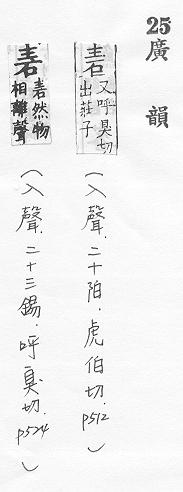 25 廣韻
砉 又呼臭切出莊子
(入聲.二十陌.虎伯切.p512)
砉 砉然物相離聲
(入聲.二十三錫.呼臭切.p524)